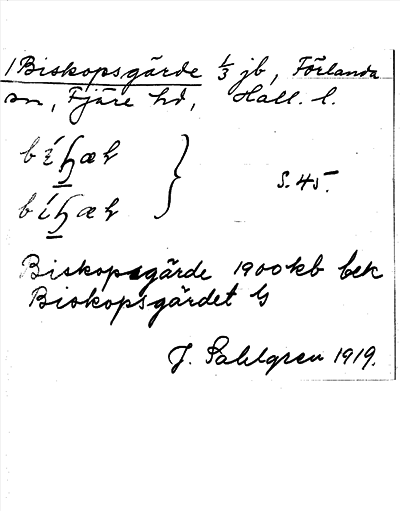 1 Biskopsgärde 1/3 jb, Förlanda
sn, Fjäre hd, Hall. l.
S. 45.
Biskopsgärde 1900 kb bek
Biskopsgärdet G
J. Sahlgren 1919.